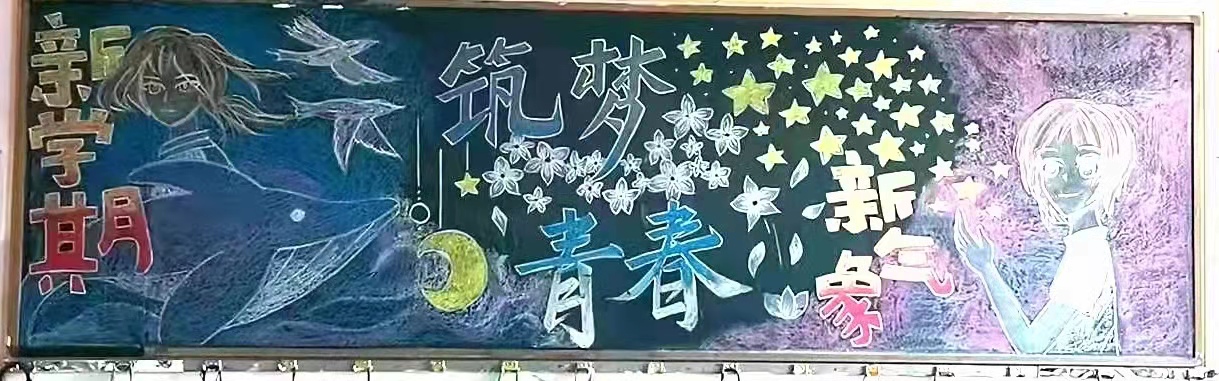 新学期
筑梦
青春
新气象